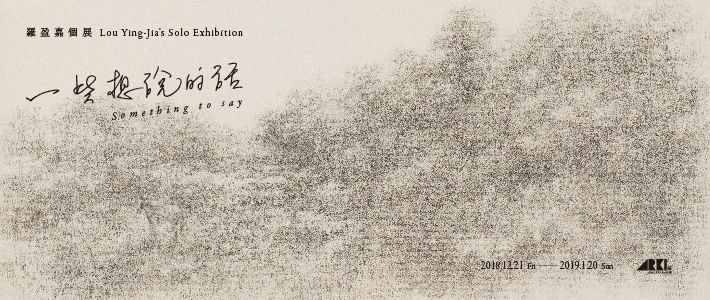 羅盈嘉個展 Lou Ying-Jia's Solo Exhibition
一些想說的話
Something to say
2018.12.21 Fri —— 2019.1.20 Sun